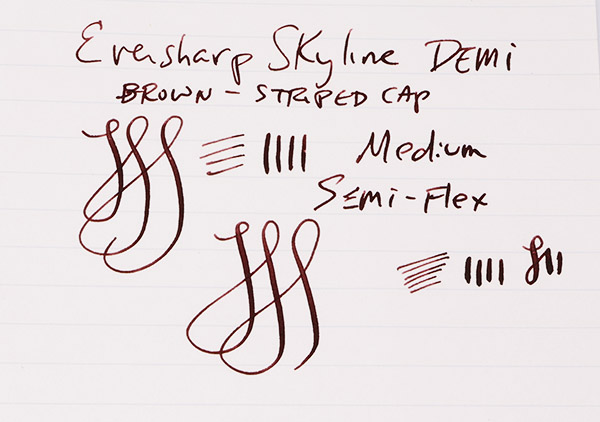 Eversharp Skyline Demi
BROWN - STRIPED CAP
Medium
Semi-Flex